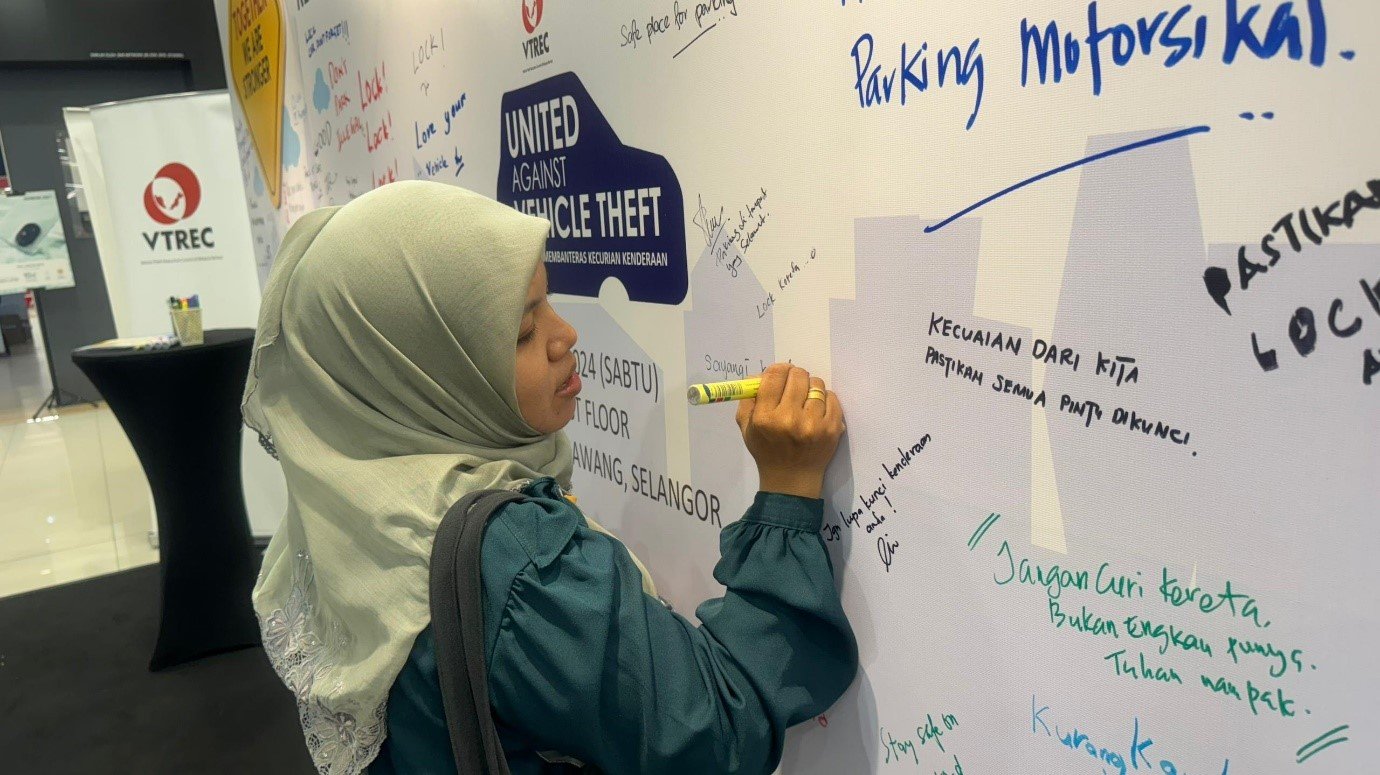 TOGETHER
WE ARE
STRONGER
VTREC
Safe place for parking
Parking Motorsikal.
LOCK!
Lock!
Lock!
Lock!
Love your
Vehicle
UNITED
AGAINST
VEHICLE THEFT
MEMBANTERAS KECURIAN KENDERAAN
VTREC
Parking di tempat
yg selamat.
Lock kereta...
PASTIKAN
LOCK
024 (SABTU)
FLOOR
AWANG, SELANGOR
Sayangi
KECUAIAN DARI KITA
PASTIKAN SEMUA PINTU DIKUNCI.
Jgn lupa kunci kenderaan
anda!
"Jangan Curi kereta,
Bukan engkau punya.
Tuhan nampak."
Stay safe on
Kurang